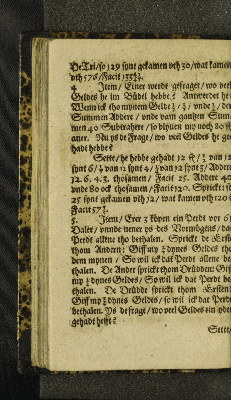 De Tri/so 129 synt gekamen vth 30/wat kamen
vth 576/Facit
4 Item/Einer werde gefraget/wo veel
Geldes he im Büdel hebbe? Antwerdet he
Wenn ick tho mynem Gelde vnde der
Summen Addere/vnde vam gantzen Summen
men 40 Subtrahere/so blyuen my noch 80 ff
auer. Nu ys de Frage/wo veel Geldes he gehadt
hadt hebbe?
Sette/he hebbe gehadt 12 ff/ van 12
synt 6/ van 12 synt 4/ van 12 synt 3/Addere
12.6.4.3. thosamen/Facit 25. Addere 40
vnde 80 ock thosamen/Facit 120. Sprickt: so
25 synt gekamen vth 12/wat kamen vth 120
Facit 57
5. Item/Erer 3 köpen ein Perdt vor 6
Daler/vnnde nener ys des Vermögens/dat
Perdt allene tho bethalen. Sprickt de Erste
thom Andern: Giff my dynes Geldes
So wil ick dat Perdt allene bethalen.
thalen. De Ander sprickt thom Drüdden: Giff
my dynes Geldes/So wil ick dat Perdt
thalen. De Drüdde sprickt thom Ersten:
Giff my dynes Geldes/so wil ick dat Perdt
bethalen. Ys de frage/wo veel Geldes ein yder
gehadt hefft?
Sette